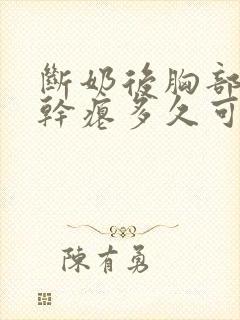 斷奶後胸部
幹癟多久可
陳有勇